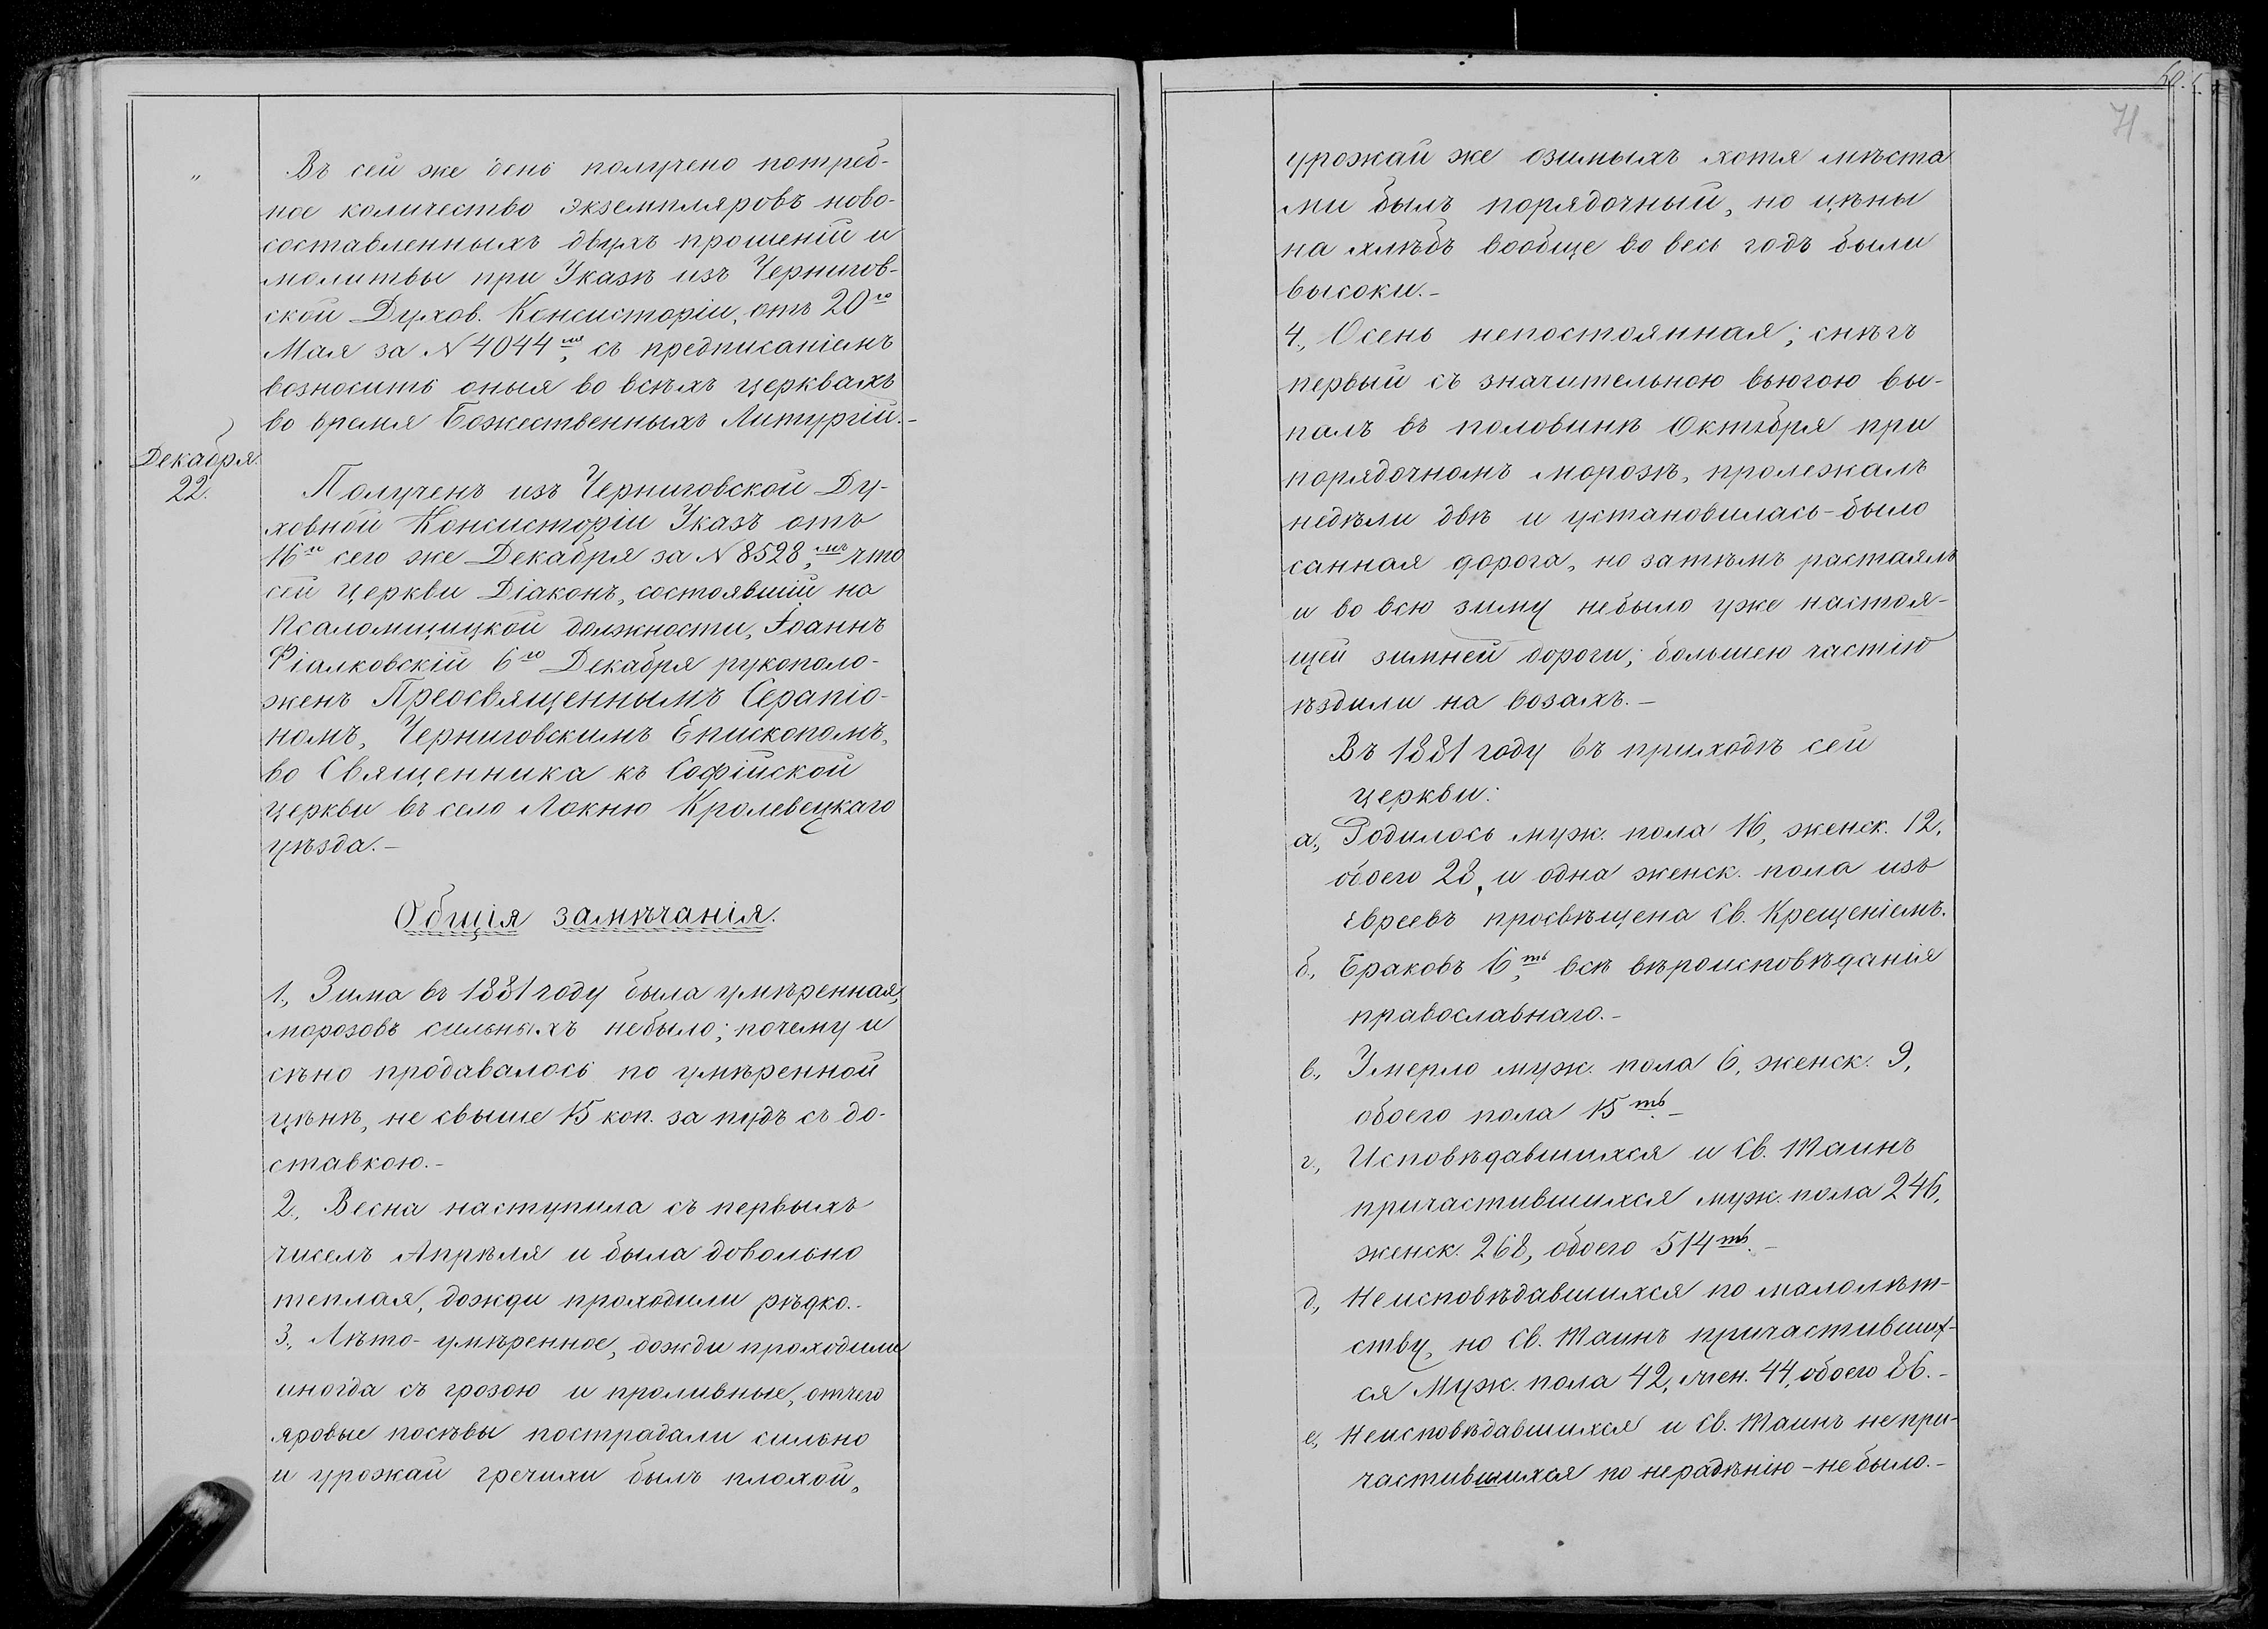 „
Въ сей же день получено потреб-
ное количество экземпляровъ ново-
составленныхъ двухъ прошеній и
молитвы при Указѣ изъ Чернигов-
ской Духов. Консисторіи, отъ 20го
Мая за № 4044мъ, съ предписаніемъ
возносить оныя во всѣхъ церквахъ
во время Божественныхъ Литургій.-
Декабря
22.
Полученъ изъ Черниговской Ду-
ховной Консисторіи Указъ отъ
16го сего же Декабря за № 8528мъ, что
сей церкви Діаконъ, состоявшій на
Псаломщицкой должности, Іоаннъ
Фіалковскій 6го Декабря рукополо-
женъ Преосвященнымъ Серапіо-
номъ, Черниговскимъ Епископомъ,
во Священника къ Софійской
церкви въ село Локню Кролевецкаго
уѣзда.-
Общія замѣчанія.
1., Зима въ 1881 году была умѣренная,
морозовъ сильныхъ небыло; почему и
сѣно продавалось по умѣренной
цѣнѣ, не свыше 15 коп. за пудъ съ до-
ставкою.-
2., Весна наступила съ первыхъ
чиселъ Апрѣля и была довольно
теплая, дожди проходили рѣдко.-
3., Лѣто- умѣренное, дожди проходили
иногда съ грозою и проливные, отчего
яровые посѣвы пострадали сильно
и урожай гречихи былъ плохой,
71
урожай же озимыхъ хотя мѣста
ми былъ порядочный, но цѣны
на хлѣбъ вообще во весь годъ были
высоки.-
4., Осень непостоянная; снѣгъ
первый съ значительною вьюгою вы-
палъ въ половинѣ Октября при
порядочномъ морозѣ, пролежалъ
недѣли двѣ и установилась-было
санная дорога, но затѣмъ растаялъ
и во всю зиму небыло уже настоя-
щей зимней дороги; большею частію
ѣздили на возахъ.-
Въ 1881 году въ приходѣ сей
церкви:
а., Родилось муж. пола 16, женск. 12,
обоего 28, и одна женск. пола изъ
Евреевъ просвѣщена Св. Крещеніемъ.
б., Браковъ 6ть, всѣ вѣроисповѣданія
православнаго.-
в., Умерло муж. пола 6, женск. 9,
обоего пола 15ть.-
г., Исповѣдавшихся и Св. Таинъ
причастившихся муж. пола 246,
женск. 268, обоего 514ть.-
д., Неисповѣдавшихся по малолѣт-
ству, но Св. Таинъ причастивших-
ся Муж. пола 42, жен. 44, обоего 86.-
е., Неисповѣдавшихся и Св. Таинъ непри-
частившихся по нерадѣнію-небыло.-